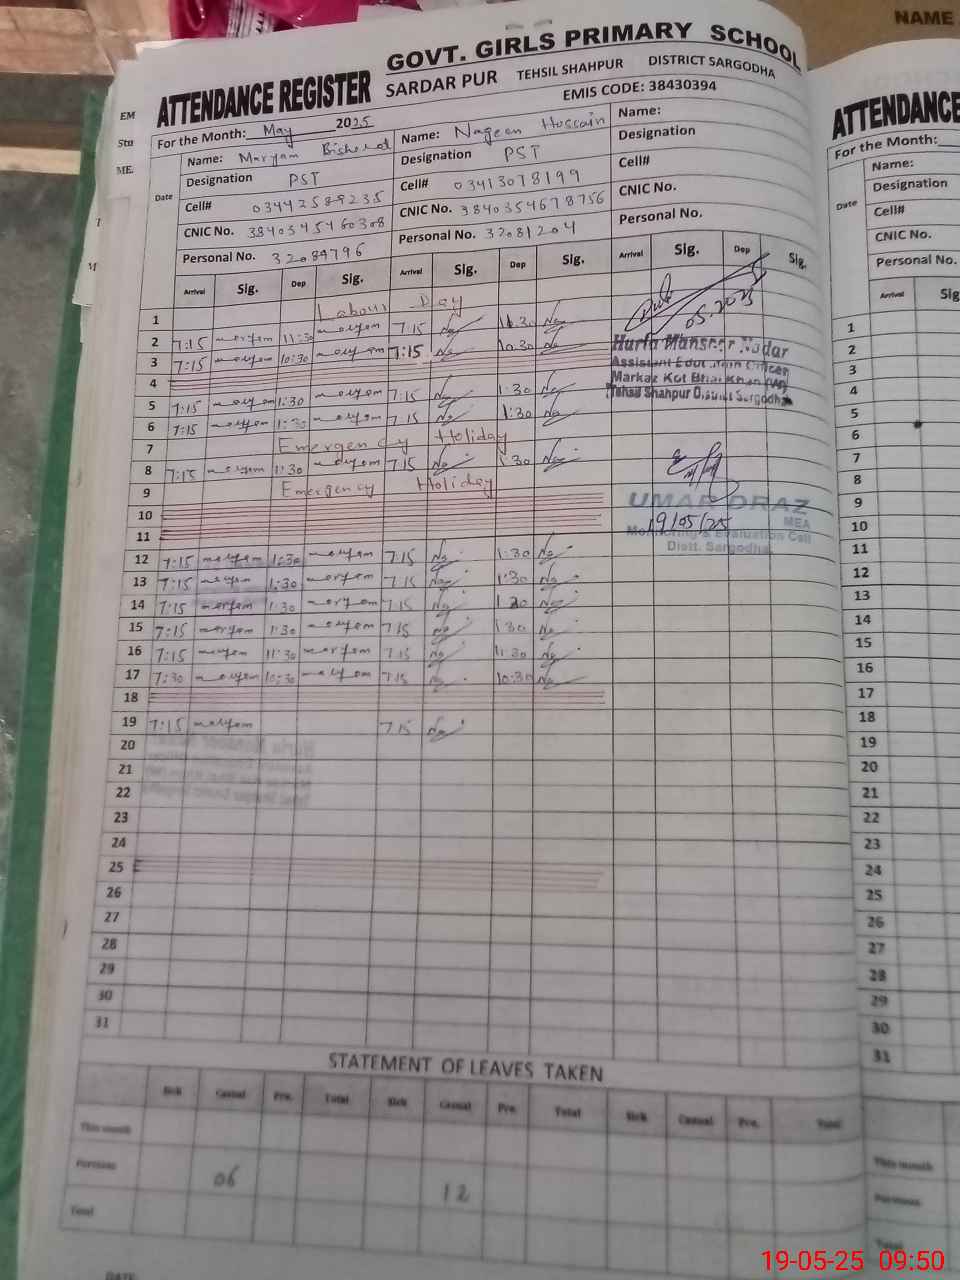 GOVT. GIRLS PRIMARY SCHOOL
ATTENDANCE REGISTER SARDAR PUR TEHSIL SHAHPUR DISTRICT SARGODHA
EMIS CODE: 38430394
For the Month: May 2025
Name: Maryam Name: Nageen Hussain Name:
Designation PST Designation PST Designation
Cell# 03442589235 Cell# 03413078199 Cell#
CNIC No. 3840345460308 CNIC No. 3840354678756 CNIC No.
Personal No. 32084796 Personal No. 32081204 Personal No.
Date
Arrival Sig. Dep Sig. Arrival Sig. Dep Sig. Arrival Sig. Dep Sig.
1 Labour Day
2 7:15 maryam 11:30 maryam 7:15 Na 11:30 Na
3 7:15 maryam 10:30 maryam 7:15 Na 10:30 Na
4
5 7:15 maryam 1:30 maryam 7:15 Na 1:30 Na
6 7:15 maryam 1:30 maryam 7:15 Na 1:30 Na
7 Emergency Holiday
8 7:15 maryam 1:30 maryam 7:15 Na 1:30 Na
9 Emergency Holiday
10
11
12 7:15 maryam 1:30 maryam 7:15 Na 1:30 Na
13 7:15 maryam 1:30 maryam 7:15 Na 1:30 Na
14 7:15 maryam 1:30 maryam 7:15 Na 1:30 Na
15 7:15 maryam 1:30 maryam 7:15 Na 1:30 Na
16 7:15 maryam 11:30 maryam 7:15 Na 11:30 Na
17 7:30 maryam 10:30 maryam 7:15 Na 10:30 Na
18
19 7:15 maryam 7:15 Na
20
21
22
23
24
25
26
27
28
29
30
31
05.2025
Hurfa Mansoor Nadar
Assistant Education Officer
Markaz Kot Bhai Khan (W)
Tehsil Shahpur District Sargodha
UMAR DRAZ
19/05/25
MEA
Monitoring & Evaluation Cell
Distt. Sargodha
STATEMENT OF LEAVES TAKEN
Sick Casual Pre. Total Sick Casual Pre. Total Sick Casual Pre. Total
This month
Previous 06 12
Total
DATE
NAME
ATTENDANCE
For the Month:
Name:
Designation
Date
Cell#
CNIC No.
Personal No.
Arrival Sig
1
2
3
4
5
6
7
8
9
10
11
12
13
14
15
16
17
18
19
20
21
22
23
24
25
26
27
28
29
30
31
This month
Previous
Total
EM
Stu
ME
19-05-25 09:50